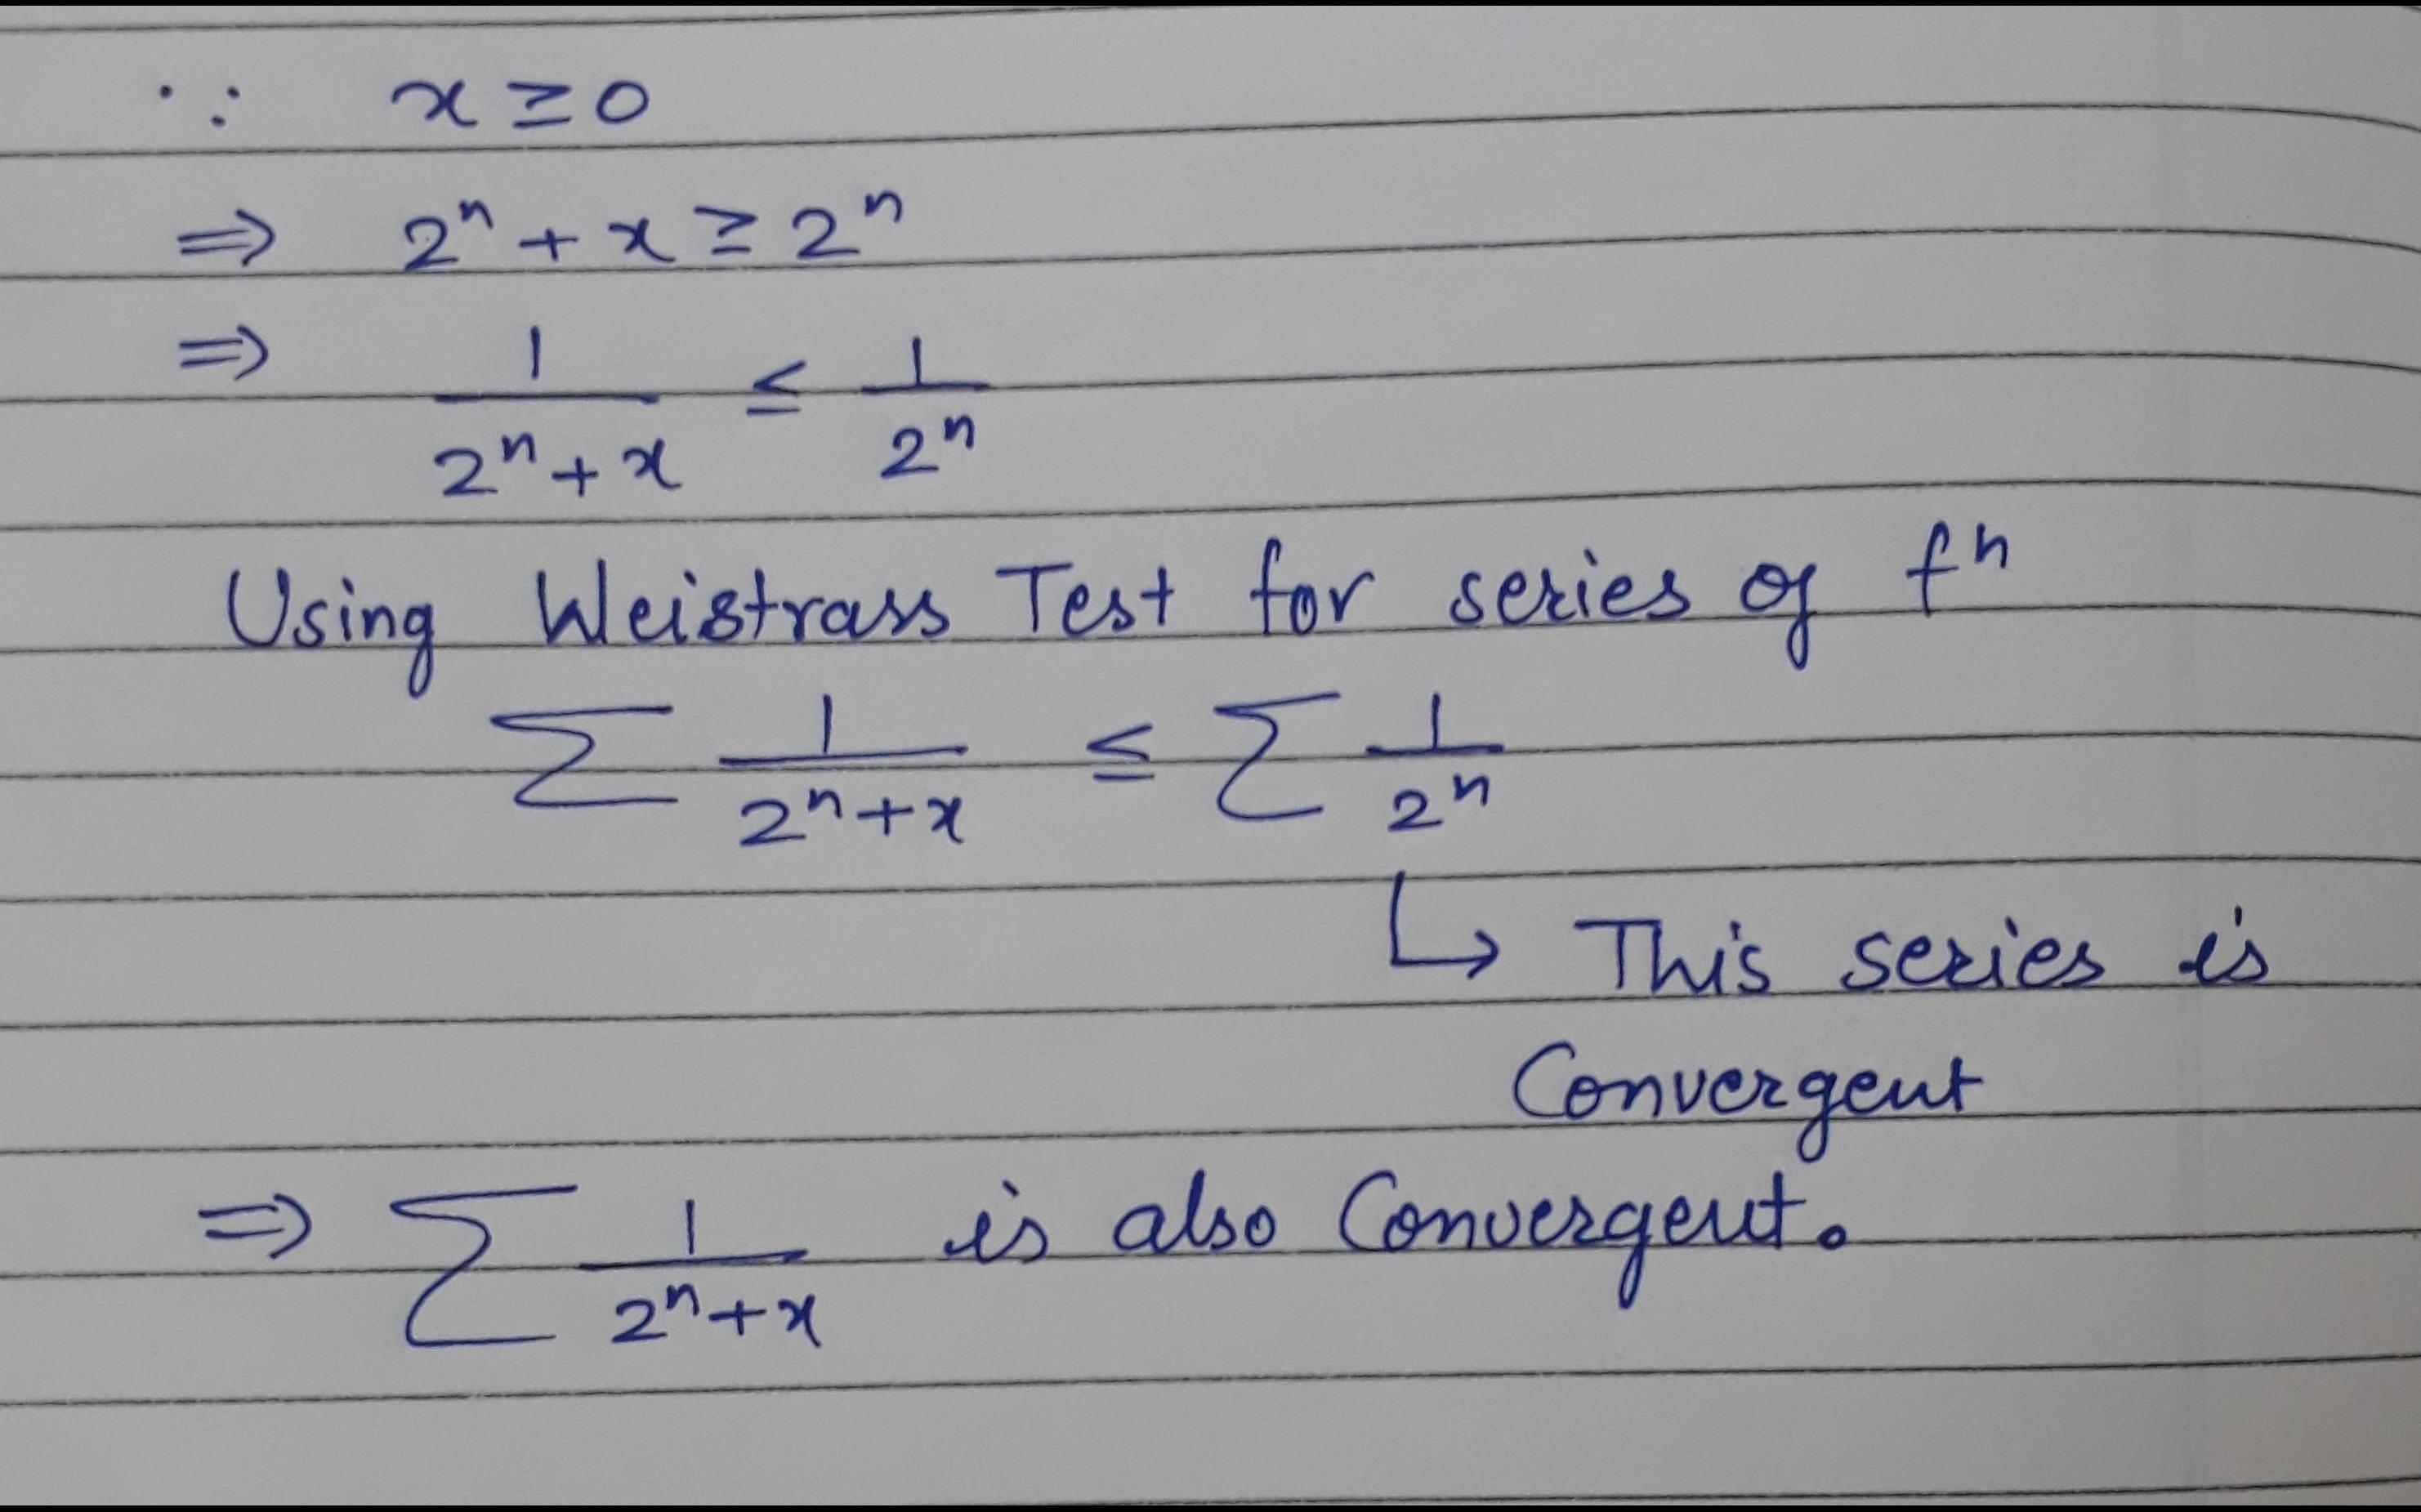 ∵ x ≥ 0
⇒ 2ⁿ + x ≥ 2ⁿ
⇒ 1/(2ⁿ + x) ≤ 1/2ⁿ
Using Weistrass Test for series of fⁿ
∑ 1/(2ⁿ + x) ≤ ∑ 1/2ⁿ
↳ This series is
Convergent
⇒ ∑ 1/(2ⁿ + x) is also Convergent.